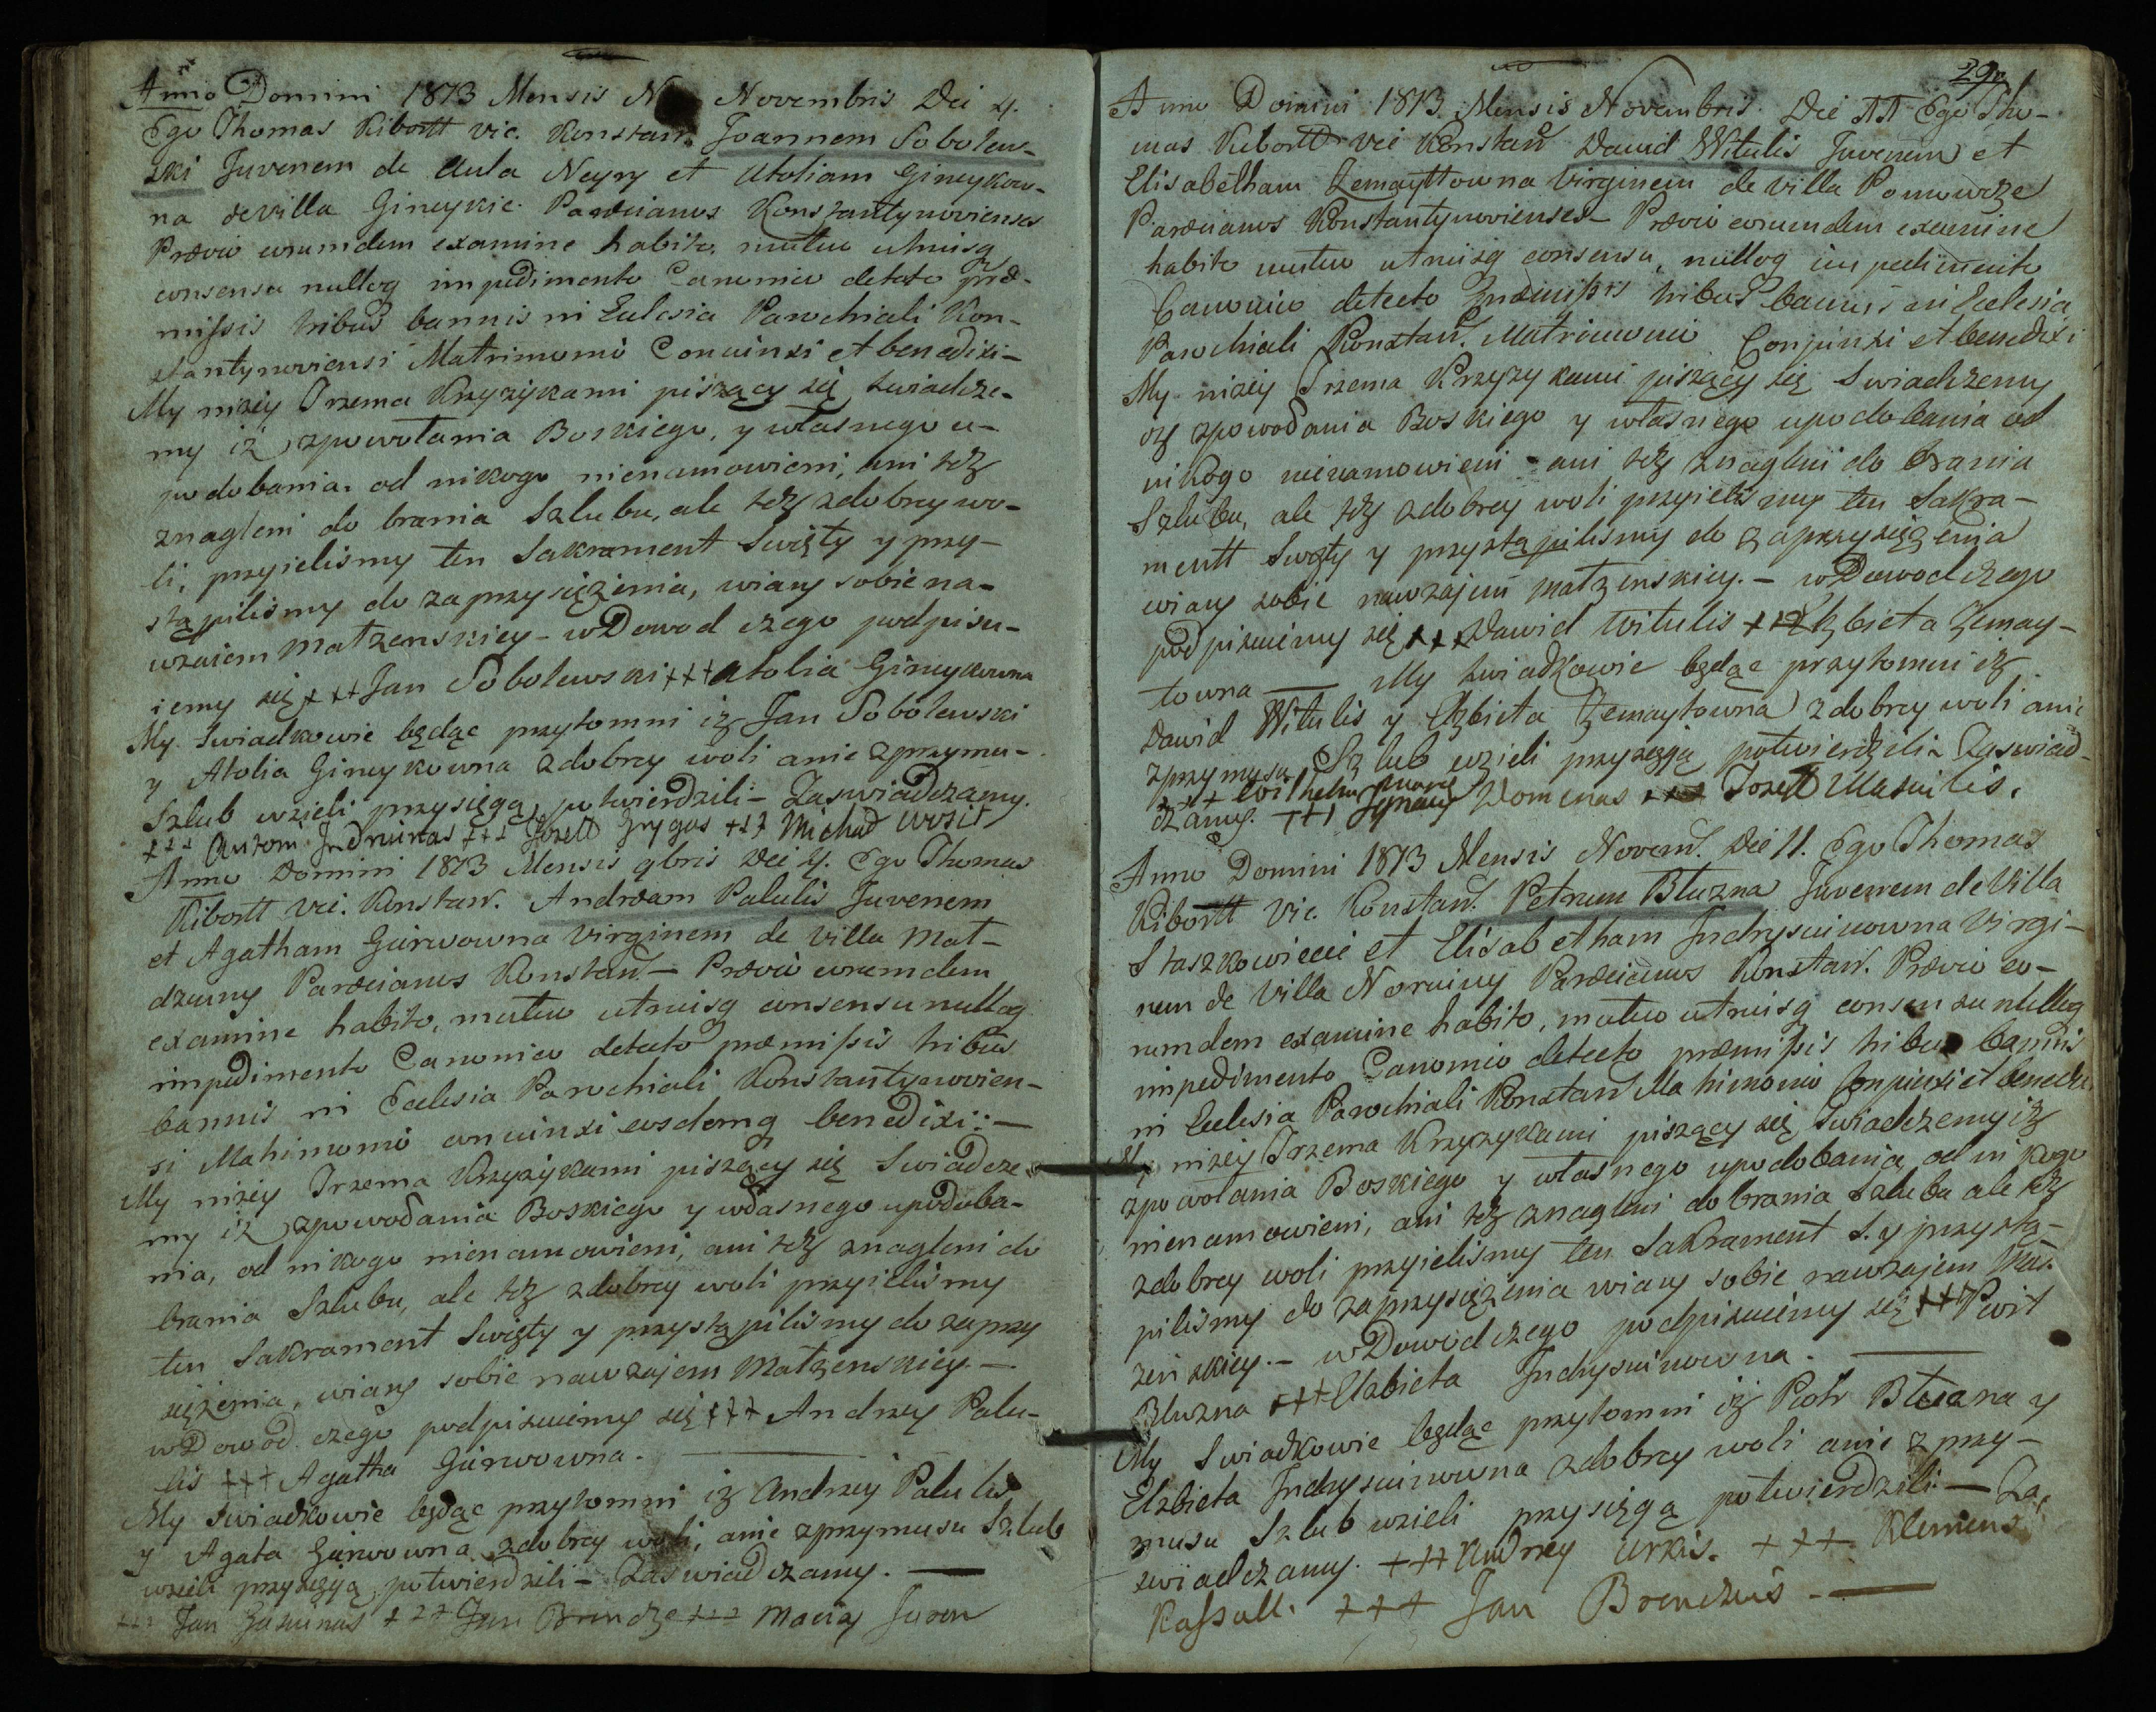 Anno Domini 1813 Mensis Novembris Dei 4.
Ego Thomas Kibortt vic. Konstan. Joannem Sobolew-
ski Juvenem de Aula Neyry et Atoliam Gineykow-
na de villa Gineykie Parœcianos Konstantynovienses
Prævio eorumdem examine habito, mutuo utriusq
consensu nulloq impedimento Canonico detecto præ-
missis tribus bannis in Eclesia Parochiali Kon-
stantynoviensi Matrimonio Conuinxi et benedixi -
My niżey Trzema Krzyżykami piszący się swiadcze-
my iż zpowołania Boskiego, y własnego u-
podobania. od nikogo nienamowieni, ani też
znagleni do brania Szlubu, ale też zdobrey wo-
li, przyieliśmy ten Sakrament Swięty y przy-
stąpiliśmy do zaprzysiężenia, wiary sobie na-
wzaiem Małżenskiey - w Dowod czego podpisu-
iemy się +++ Jan Sobolewski +++ Atolia Gineykowna
My Swiadkowie będąc przytomni iż Jan Sobolewski
y Atolia Gineykowna zdobrey woli anie zprzymu-
Szlub wzieli przysięgą potwierdzili - Zaswiadczamy.
+++ Antoni +++ Jozeff Grygas +++ Michał
Anno Domini 1813 Mensis 9bris Dei 4. Ego Thomas
Kibortt Vic. Konstan. Andream Palulis Juvenem
et Agatham Girwowna Virginem de Villa Mat-
dzuny Parœcianos Konstan. - Prævio eorumdem
examine habito, mutuo utriusq consensu nulloq
impedimento Canonico detecto præmissis tribus
bannis in Eclesia Parochiali Konstantynovien-
si Matrimonio conuinxi eosdemq benedixi: -
My niżey Trzema Krzyżykami piszący się Swiadcze-
my iż zpowodania Boskiego y własnego upodoba-
nia, od nikogo nienamowieni, ani też znagleni do
brania Szlubu, ale też zdobrey woli przyieliśmy
ten Sakrament Swięty y przystąpiliśmy do zaprzy
siężenia, wiary sobie nawzajem Małżenskiey. -
w Dowod czego podpisuiemy się +++ Andrzey Palu-
lis +++ Agatha Girwowna.
My Swiadkowie będąc przytomni iż Andrzey Palulis
y Agata Girwowna zdobrey woli, anie zprzymusu Szlub
wzieli przysięgą potwierdzili - Zaswiadczamy. -
+++ Jan +++ Jan +++ Maciey
29
Anno Domini 1813 Mensis Novembris. Dei 11 Ego Tho-
mas Kibortt vic Konstan Dawid Witulis Juvenem et
Elisabetham Zemayttowna Virginem de villa
Parœcianos Konstantynovienses - Prævio eorumdem examine
habito mutuo utriusq consensu, nulloq impedimento
Canonico detecto præmissis tribus bannis in Eclesia
Parochiali Konstan. Matrimonio Conjunxi et benedixi
My niżey Trzema Krzyżykami piszący się Swiadczemy
yż zpowodania Boskiego y własnego upodobania od
nikogo nienamowieni - ani też znagleni do brania
Szlubu, ale też zdobrey woli przyieliśmy ten Sakra-
mentt Swęty y przystąpiliśmy do zaprzysiężenia
wiary sobie nawzajem Małżenskiey. - w Dowod czego
podpisuiemy się +++ Dawid Witulis +++ Elżbieta Zemay-
towna - My Swiadkowie będąc przytomni iż
Dawid Witulis y Elżbieta Zemaytowna zdobrey woli anie
zprzymusu Szlub wzieli przysięgą potwierdzili - Zaswiad-
+++ Wilhelm
czamy. +++ Ignacy +++ Jozeff
Anno Domini 1813 Mensis Novem. Dei 11. Ego Thomas
Kibortt Vic. Konstan. Petrum Bluzna Juvenem de Villa
Staszkowiecie et Elisabetham Indryszuiowna Virgi-
nem de Villa Parœcianos Konstan. Prævio eo-
rumdem examine habito, mutuo utriusq consensu nulloq
impedimento Canonico detecto præmissis tribus bannis
in Eclesia Parochiali Konstan Matrimonio Conjunxi et benedixi
My niżey Trzema Krzyżykami piszący się Swiadczemy iż
zpowołania Boskiego y własnego upodobania, od nikogo
nienamowieni, ani też znagleni do brania Szlubu ale też
zdobrey woli przyieliśmy ten Sakrament S. y przystą-
piliśmy do zaprzysiężenia wiary sobie nawzajem Mał-
żenskiey. - w Dowod czego podpisuiemy się +++ Piotr
Bluzna +++ Elzbieta Indryszuiowna. -
My Swiadkowie będąc przytomni iż Piotr Bluzna y
Elzbieta Indryszuiowna zdobrey woli anie zprzy-
musu Szlub wzieli przysięgą potwierdzili - Za,
swiadczamy. +++ Andrzey Urkis. +++ Klemens
Kassall. +++ Jan Brenczus. -